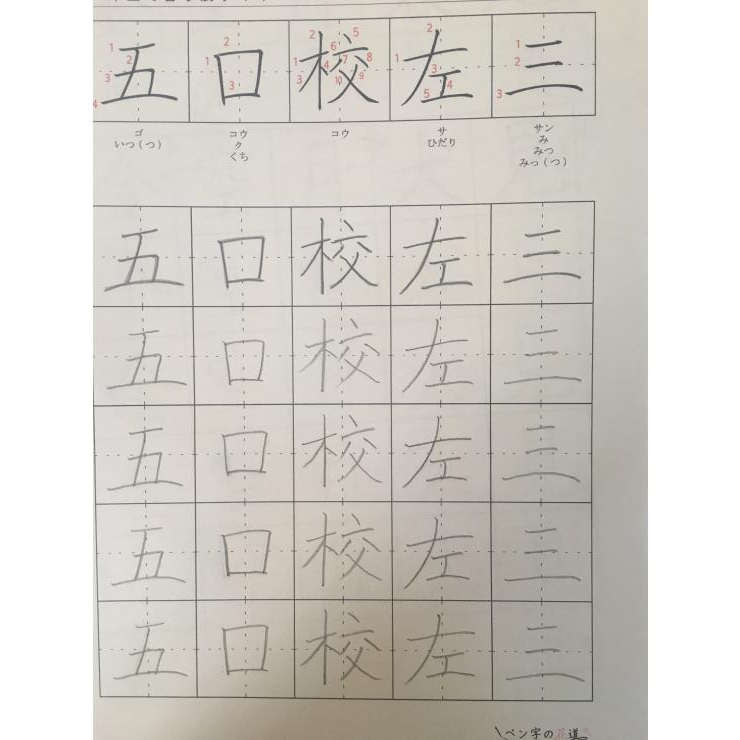 五 口 校 左 三
ゴ コウ コウ サ サン
いつ(つ) ク ひだり み
くち みつ
みっ(つ)
五 口 校 左 三
五 口 校 左 三
五 口 校 左 三
五 口 校 左 三
五 口 校 左 三
ペン字の花道